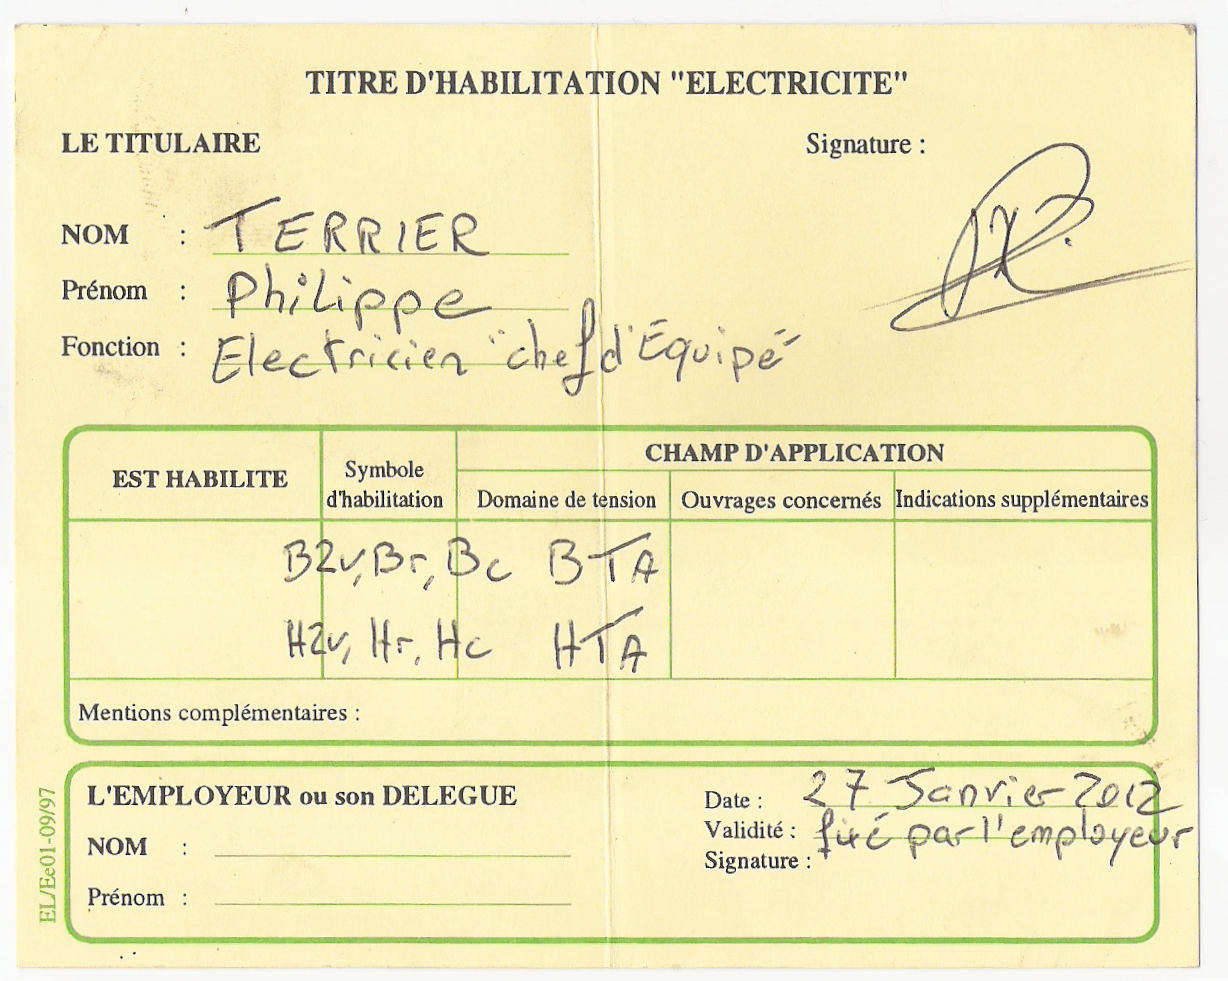 TITRE D'HABILITATION "ELECTRICITE"
LE TITULAIRE
Signature :
NOM : TERRIER
Prénom : Philippe
Fonction : Electricien "chef d'Equipe"
EST HABILITE
Symbole d'habilitation
CHAMP D'APPLICATION
Domaine de tension
Ouvrages concernés
Indications supplémentaires
B2v, Br, Bc BTA
H2v, Hr, Hc HTA
Mentions complémentaires :
L'EMPLOYEUR ou son DELEGUE
NOM :
Prénom :
Date : 27 Janvier 2012
Validité : fixé par l'employeur
Signature :
EL/Ee01-09/97